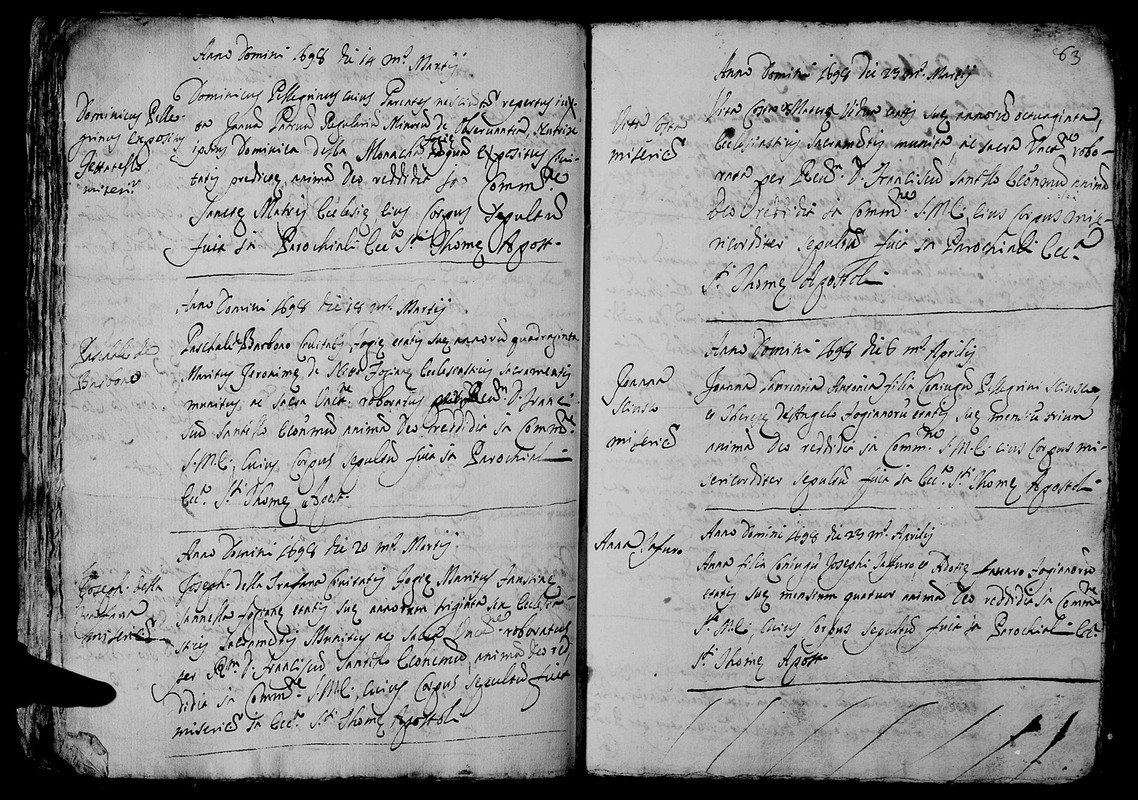 Anno Domini 1698 die 14 m.s Martij
Dominicus Pelle-
grinus Expositus
miseric.
Dominicus Pellegrinus cuius Parentes nesciunt.r repertus
Janua Patrum Regulariũ Minorũ de Observantia, Nutrix
ipsius Dominica della Monacha Expositus Civi-
tatis predicte, animã Deo reddidit in Comm.ne
Sancte Matris Ecclesie, eius Corpus Sepultũ
fuit in Parochiali Ecc.a S.ti Thome Apost.
Anno Domini 1698 die 18 m.s Martij
Paschalis de
Barbaro
Paschalis Barbaro Civitatis Fogie etatis sue annorũ quadraginta
Maritus Jeronime de Nitto Fogiane Ecclesiasticis Sacramentis
munitus ac Sacra Unct.ne roboratus D. Franci-
scũ Santillo Econmũ animã Deo reddidit in Comm.ne
S.M.E. Cuius Corpus sepultũ fuit in Parochiali
Ecc.a S.ti Thome Apost.
Anno Domini 1698 die 20 m.s Martij
Joseph della
miseric.
Joseph della Civitatis Fogie Maritus Faustine
Iannella Fogiane etatis sue annorum triginta sex Ecclesia-
sticis Sacramentis Munitus ac Sacra Unct.ne roboratus
per R.m D. Franciscũ Santillo Econmũ, animã Deo red-
didit in Comm.ne S.M.E. Cuius Corpus sepultũ fuit
miseric. in Ecc.a S.ti Thome Apostoli
63
Anno Domini 1698 die 23 m.s Martij
Vita Costa
miseric.
Vita Costa Vidua etatis sue annorũ octuaginta,
Ecclesiasticis Sacramentis munita ac sacra Unct.ne robo-
rata per Reu.m D. Franciscũ Santillo Econmũ animã
Deo reddidit in Comm.ne S.M.E. cuius Corpus mise-
ricorditer sepultũ fuit in Parochiali Ecc.a
S.ti Thome Apostoli
Anno Domini 1698 die 6 m.s Aprilis
Joanna
miseric.
Joanna Laurentia Antonia filia Coniugũ Pellegrini
et Therese de Angelo Fogianorũ etatis sue mensiũ trium
animã Deo reddidit in Comm.ne S.M.E. cuius Corpus mi-
sericorditer sepultũ fuit in Ecc.a S.ti Thome Apostoli
Anno Domini 1698 die 23 m.s Aprilis
Anna
Anna filia Coniugũ Josephi et Fogianorũ
etatis sue mensium quatuor animã Deo reddidit in Comm.ne
S.M.E. Cuius Corpus sepultũ fuit in Parochiali Ecc.a
S.ti Thome Apost.